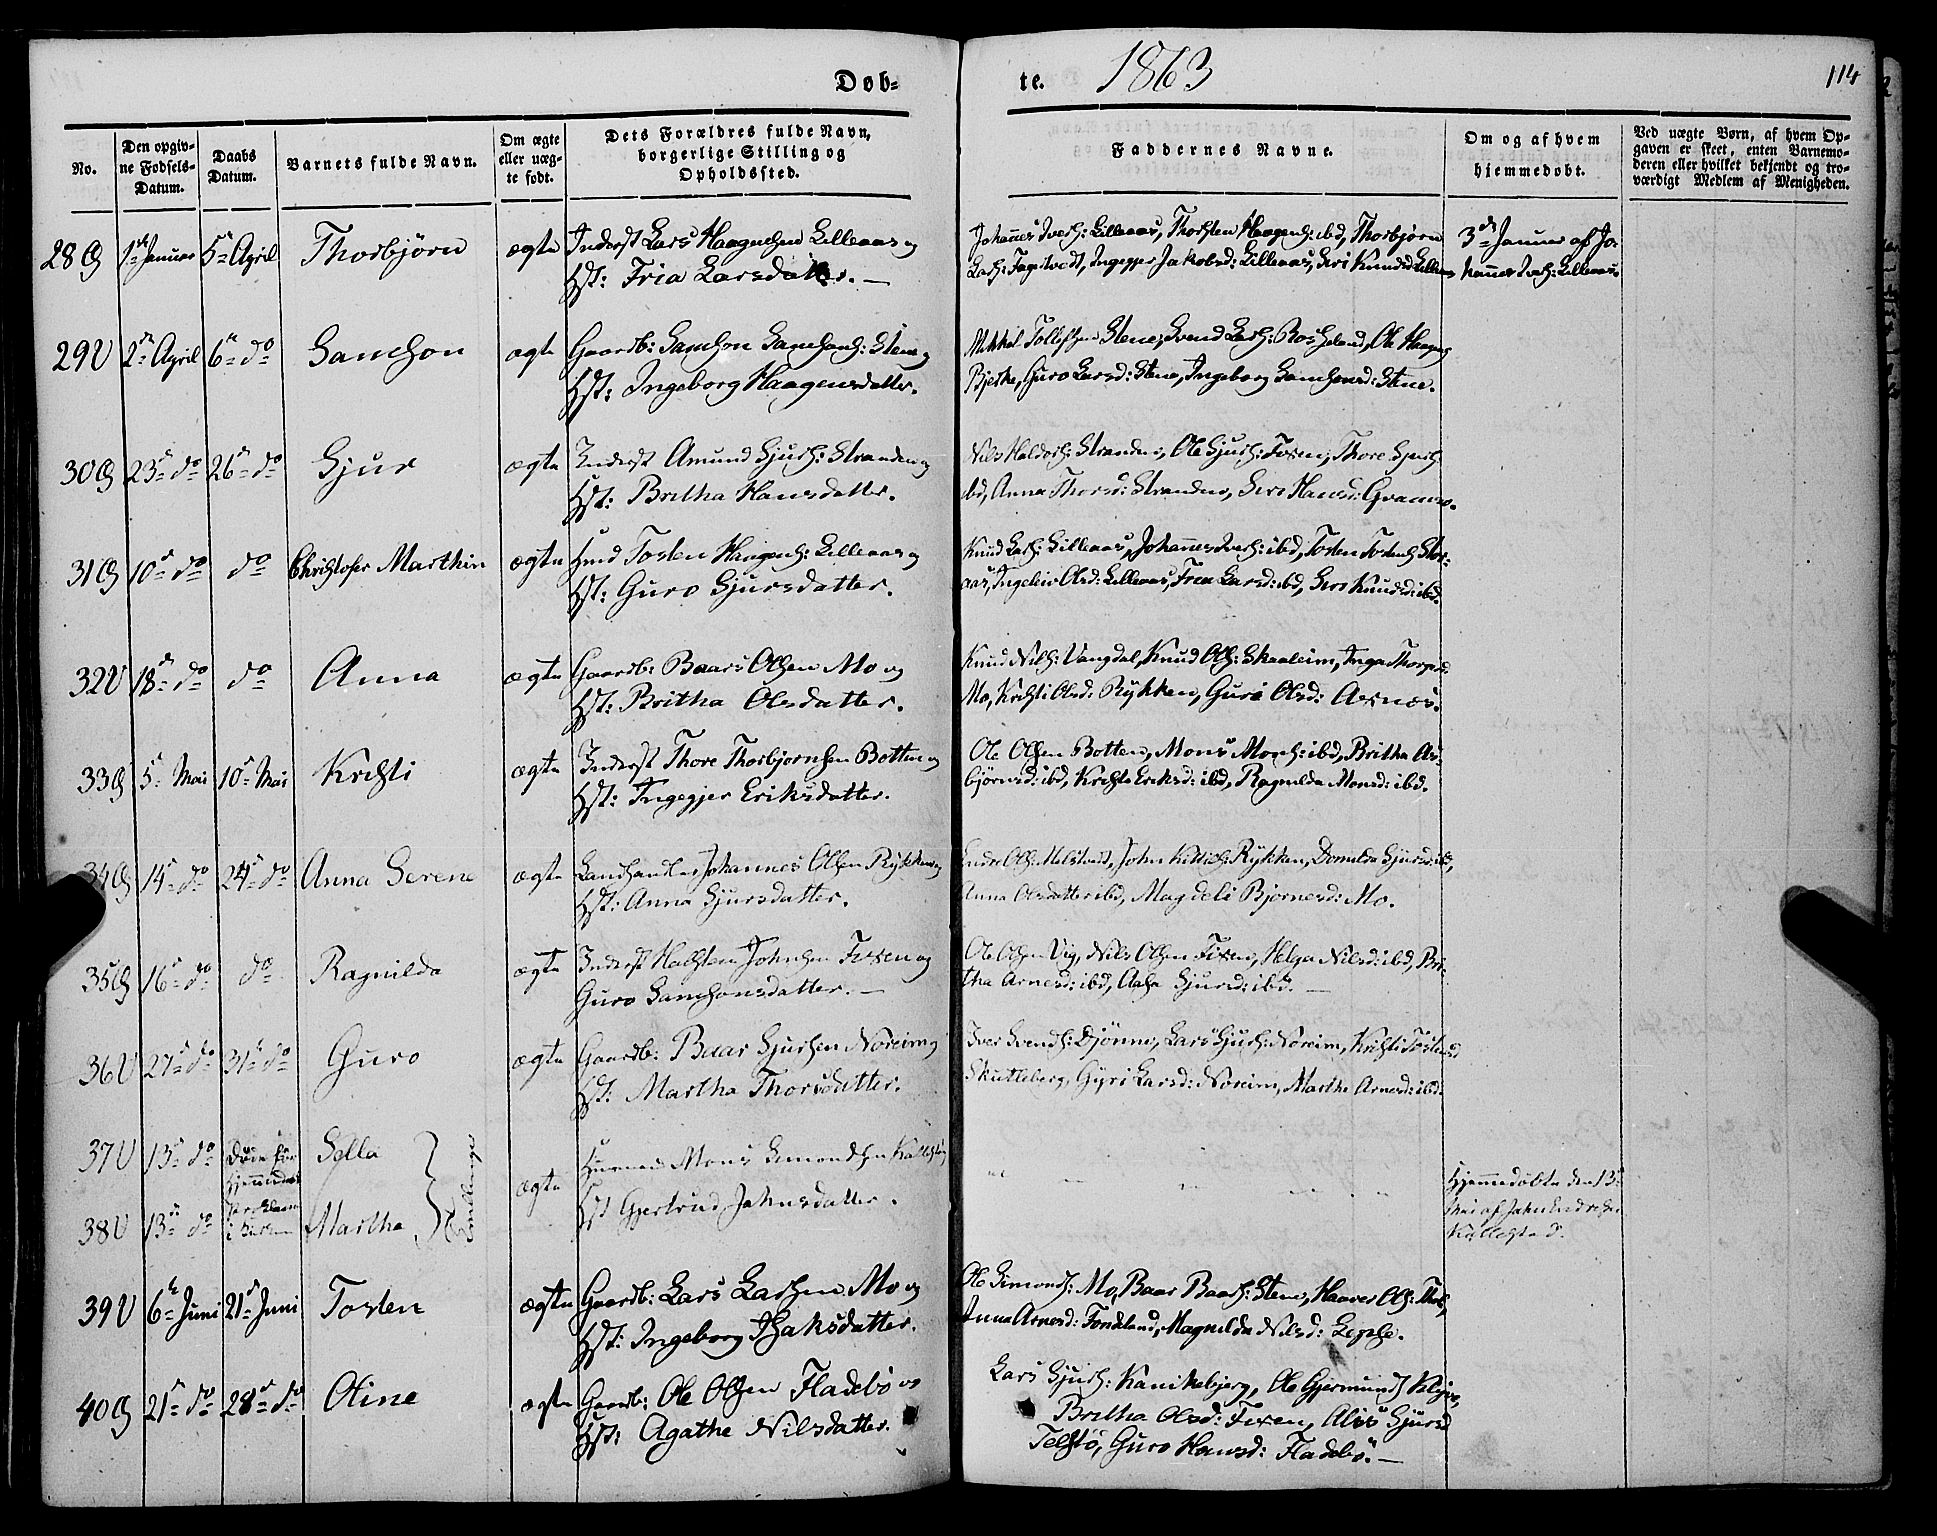 Døb=
te. 1863
114
No.
Den opgiv=
ne Fødsels=
Datum.
Daabs
Datum.
Barnets fulde Navn.
Om ægte
eller uæg=
te født.
Dets Forældres fulde Navn,
borgerlige Stilling og
Opholdssted.
Faddernes Navne.
Om og af hvem
hjemmedøbt.
Ved uægte Børn, af hvem Op=
gaven er skeet, enten Barnemo=
deren eller hvilket bekjendt og tro=
værdigt Medlem af Menigheden.
28 G 1ste Januar 5te April Thorbjørn ægte Inderst Lars Haagensen Lilleaas og
Hst: Fria Larsdatter. —
Johannes Ivers: Lilleaas, Thorsten Haagens: ibd, Thorbjørn
Lars: Fagitvedt, Ingegjer Jakobsd: Lilleaas, Seri Knudsd Lilleaas
3de Januar af Jo-
hannes Ivers: Lilleaas.
29 U 2den April 6te do Samson ægte Gaardb: Samson Samsons: Stene og
Hst: Ingeborg Haagensdatter.
Mikkel Tollefsen Stene, Svend Lars: Rosseland, Ole Haagens
Bjerke, Guro Larsd: Stene, Ingeborg Samsonsd: Stene.
30 G 23de do 26de do Sjur ægte Inderst Amund Sjurs: Stranden og
Hst: Britha Hansdatter.
Nils Haldors: Stranden, Ole Sjurs: Fixen, Thore Sjurs:
ibd, Anna Thorsd: Stranden, Seri Hansd:
31 G 10de do do Christofer Marthin ægte Hmd Tosten Haagens: Lilleaas og
Hst: Guro Sjursdatter.
Knud Lars: Lilleaas, Johannes Ivers: ibd, Tosten Tostens Stor-
aas, Ingeleiv Olsd: Lilleaas, Fria Larsd: ibd, Seri Knudsd: ibd.
32 U 18de do do Anna ægte Gaardb: Baars Olsen Mo og
Hst: Britha Olsdatter.
Knud Nils: Vangdal, Knud Ols: Skaaleim, Inga Thorsd:
Mo, Kristi Olsd: Rykken, Guri Olsd: Axnæs.
33 G 5te Mai 10de Mai Kristi ægte Inderst Thore Thorbjørnsen Botten og
Hst: Ingegjer Eriksdatter.
Ole Olsen Botten, Mons Mons: ibd, Britha As-
bjørnsd: ibd, Kristi Eriksd: ibd, Ragnilda Monsd: ibd.
34 G 14de do 24de do Anna Serene ægte Landhandler Johannes Olsen Rykken og
Hst: Anna Sjursdatter.
Endre Ols: John Rykken, Domilda Sjursd: ibd,
Anna Olsdatter ibd, Magdeli Bjørnesd: Mo.
35 G 16de do do Ragnilda ægte Inderst Halsten Johnsen Fixen og
Guro Samsonsdatter. —
Ole Olsen Vig, Nils Olsen Fixen, Helga Nilsd: ibd, Bri-
tha Arnesd: ibd, Aasa Sjursd: ibd. —
36 U 27de do 31te do Guro ægte Gaardb: Baar Sjursen Noreim og
Hst: Martha Thorsdatter.
Iver Svends: Djønne, Lars Sjurs: Noreim, Kristi Tostensd
Skutleberg, Gyri Larsd: Noreim, Martha Arnesd: ibd.
37 U 13de do Døde før Sella Tvillinger
38 U 13de do Martha
ægte Mons Simondsen Kallestad og
Hst Gjertrud Johnsdatter.
Hjemmedøbte den 13de
Mai af John Endresen
Kallestad.
39 U 6te Juni 21de Juni Tosten ægte Gaardb: Lars Larsen Mo og
Hst: Ingeborg Isaksdatter.
Ole Simonds: Mo, Baar Baars: Stene, Haaver Ols: Mo,
Anna Arnesd: Tondeland, Magnilda Nilsd: Lepse.
40 G 21de do 28de do Oline ægte Gaardb: Ole Olsen Fladebø og
Hst: Agathe Nilsdatter.
Lars Sjurs: Kanikebjerg, Ole Gjermunds
Britha Olsd: Fixen, Alis Sjursd
Telstø, Guro Hansd: Fladebø. —